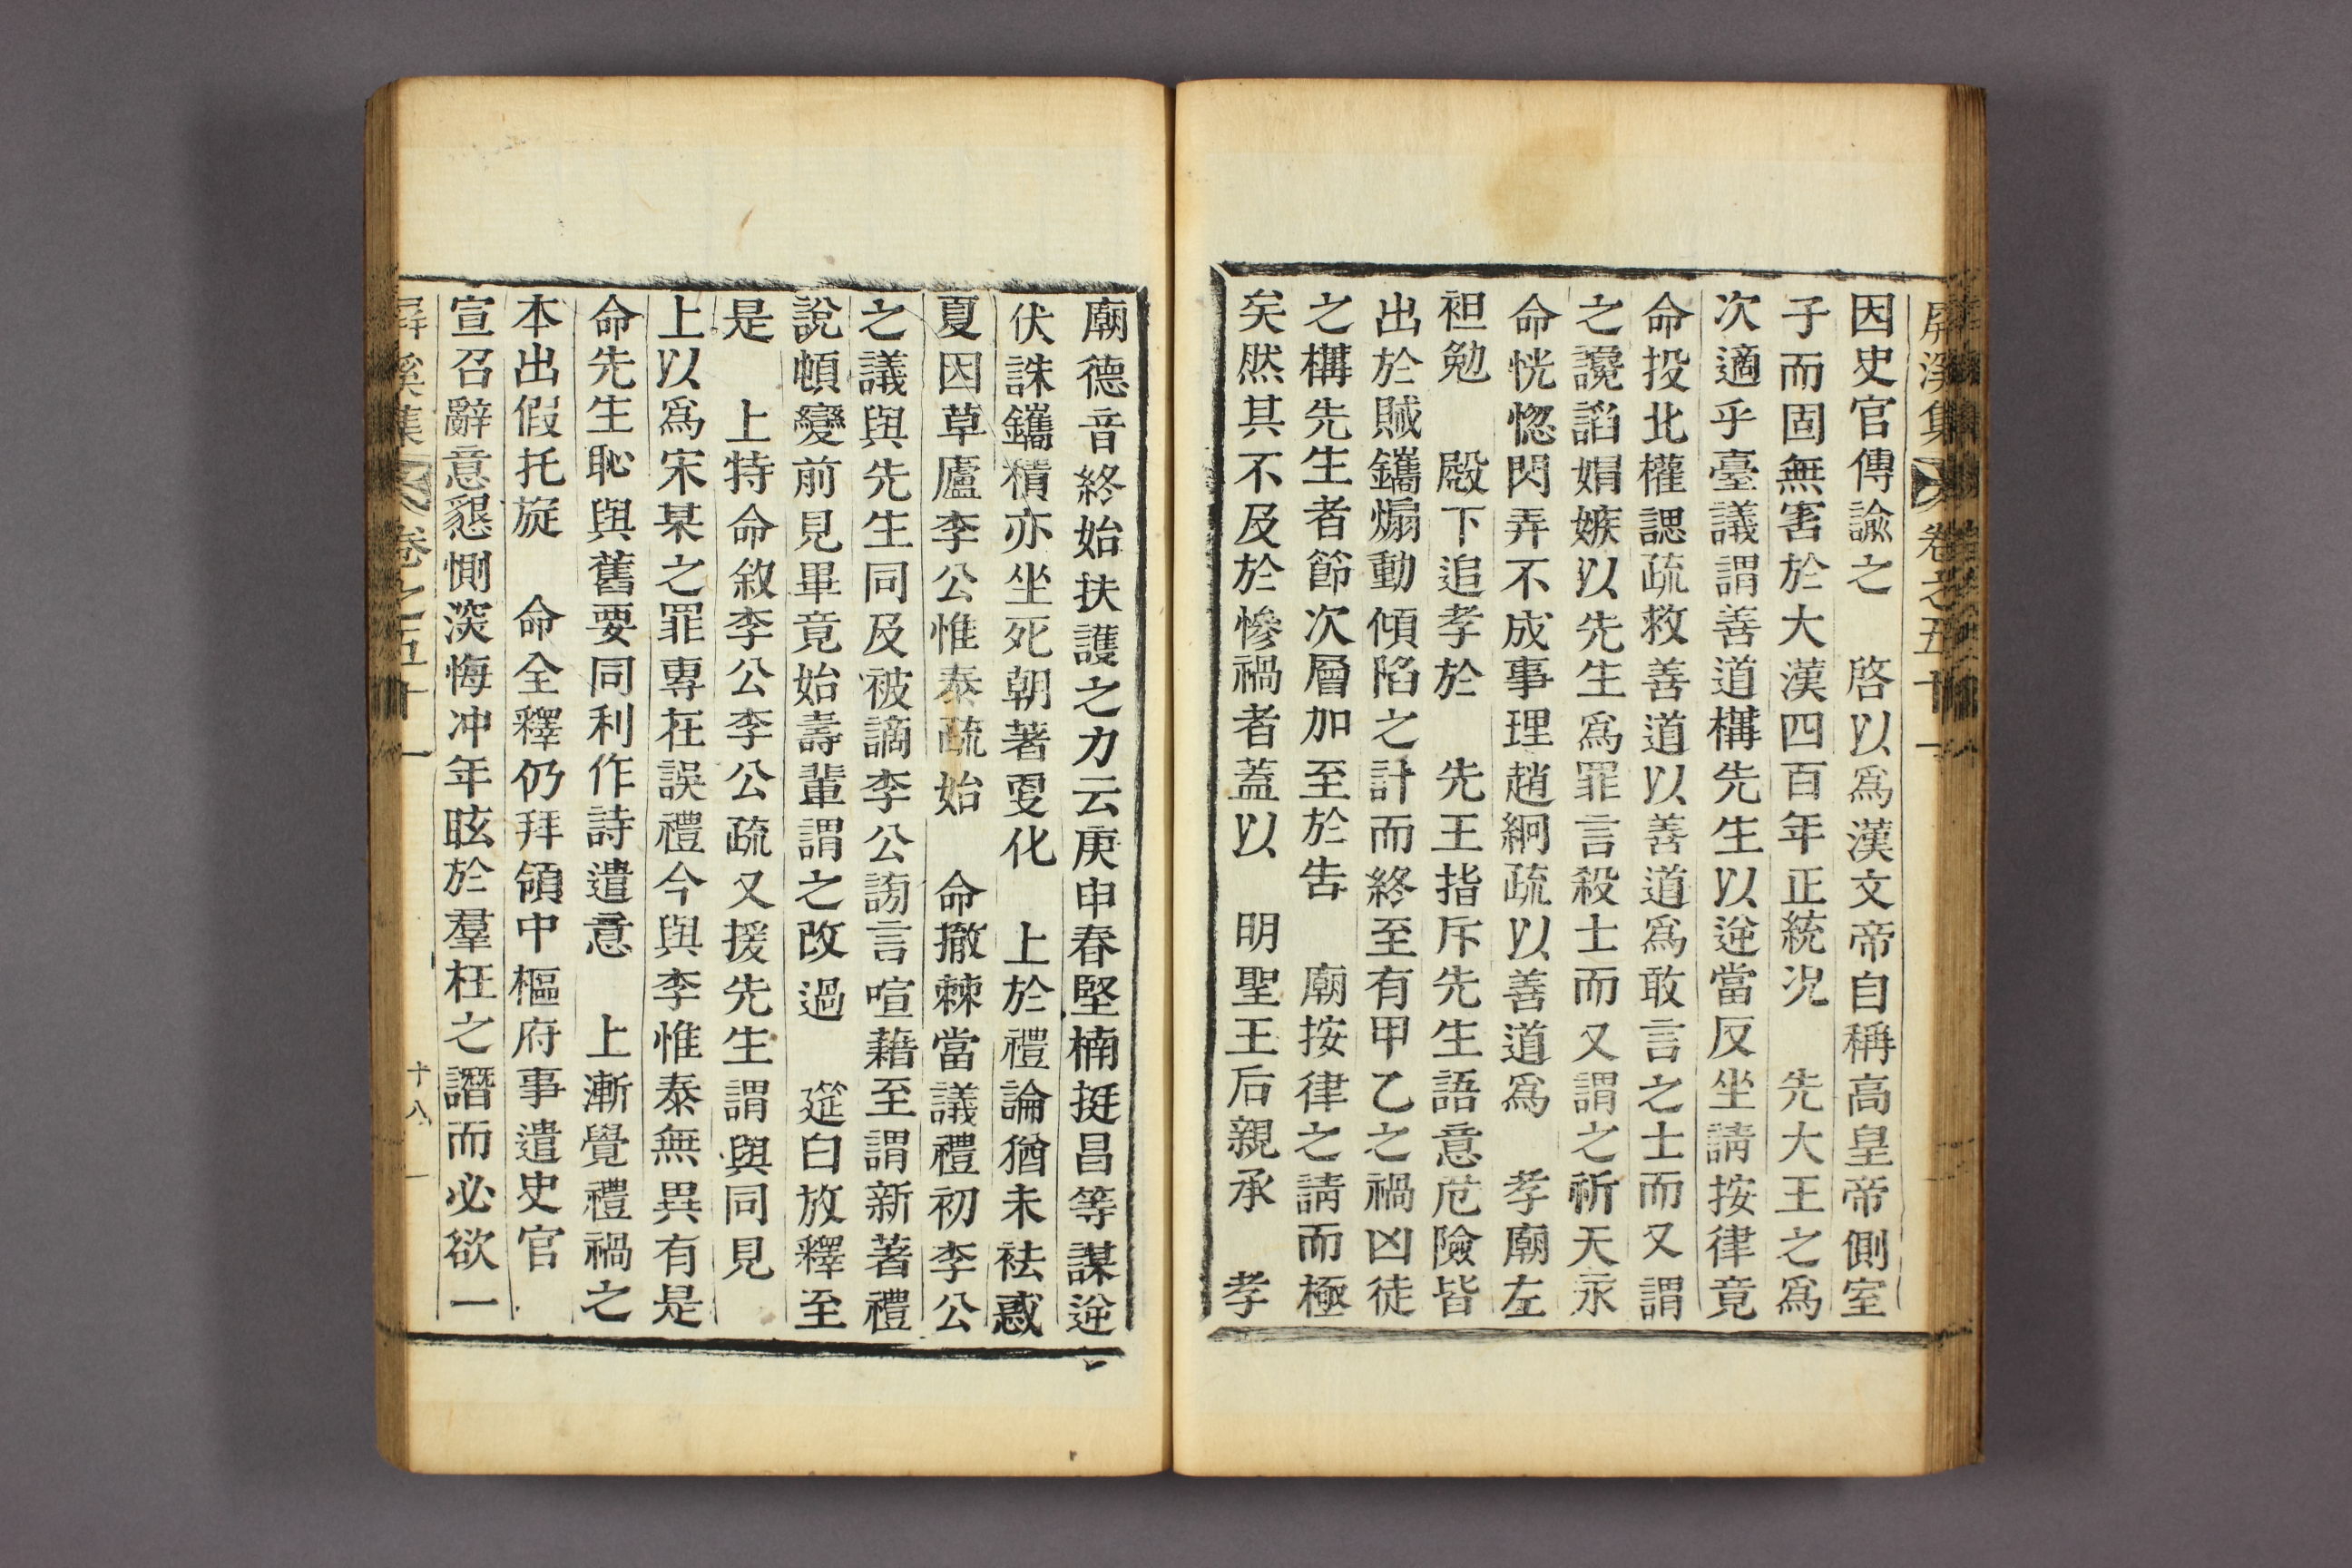 屛溪集 卷之五十一
因史官傳諭之 啓以爲漢文帝自稱高皇帝側室
子而固無害於大漢四百年正統况 先大王之爲
次適乎臺議謂善道構先生以逆當反坐請按律竟
命投北權諰疏救善道以善道爲敢言之士而又謂
之讒謟媢嫉以先生爲罪言殺士而又謂之祈天永
命恍惚閃弄不成事理趙絅疏以善道爲 孝廟左
袒勉 殿下追孝於 先王指斥先生語意危險皆
出於賊鑴煽動傾陷之計而終至有甲乙之禍凶徒
之構先生者節次層加至於告 廟按律之請而極
矣然其不及於慘禍者蓋以 明聖王后親承 孝
廟德音終始扶護之力云庚申春堅楠挺昌等謀逆
伏誅鑴積亦坐死朝著更化 上於禮論猶未袪惑
夏因草廬李公惟泰疏始 命撤棘當議禮初李公
之議與先生同及被謫李公謗言喧藉至謂新著禮
說頓變前見畢竟始壽輩謂之改過 筵白放釋至
是 上特命敘李公李公疏又援先生謂與同見
上以爲宋某之罪專在誤禮今與李惟泰無異有是
命先生恥與舊要同利作詩遣意 上漸覺禮禍之
本出假托旋 命全釋仍拜領中樞府事遣史官
宣召辭意懇惻深悔冲年眩於羣枉之譖而必欲一
屛溪集 卷之五十一 十八